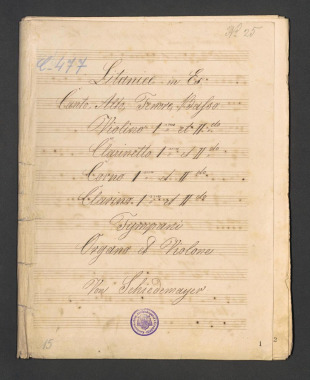 № 25
A.477
Litaniee in Es
Canto, Alto, Tenore, Basso
Violino I mo et II do
Clarinetto I mo et II do
Corno I mo et II do
Clarino I mo et II do
Tympani
Organo et Violone
Von Schiedermayer
15
1
2